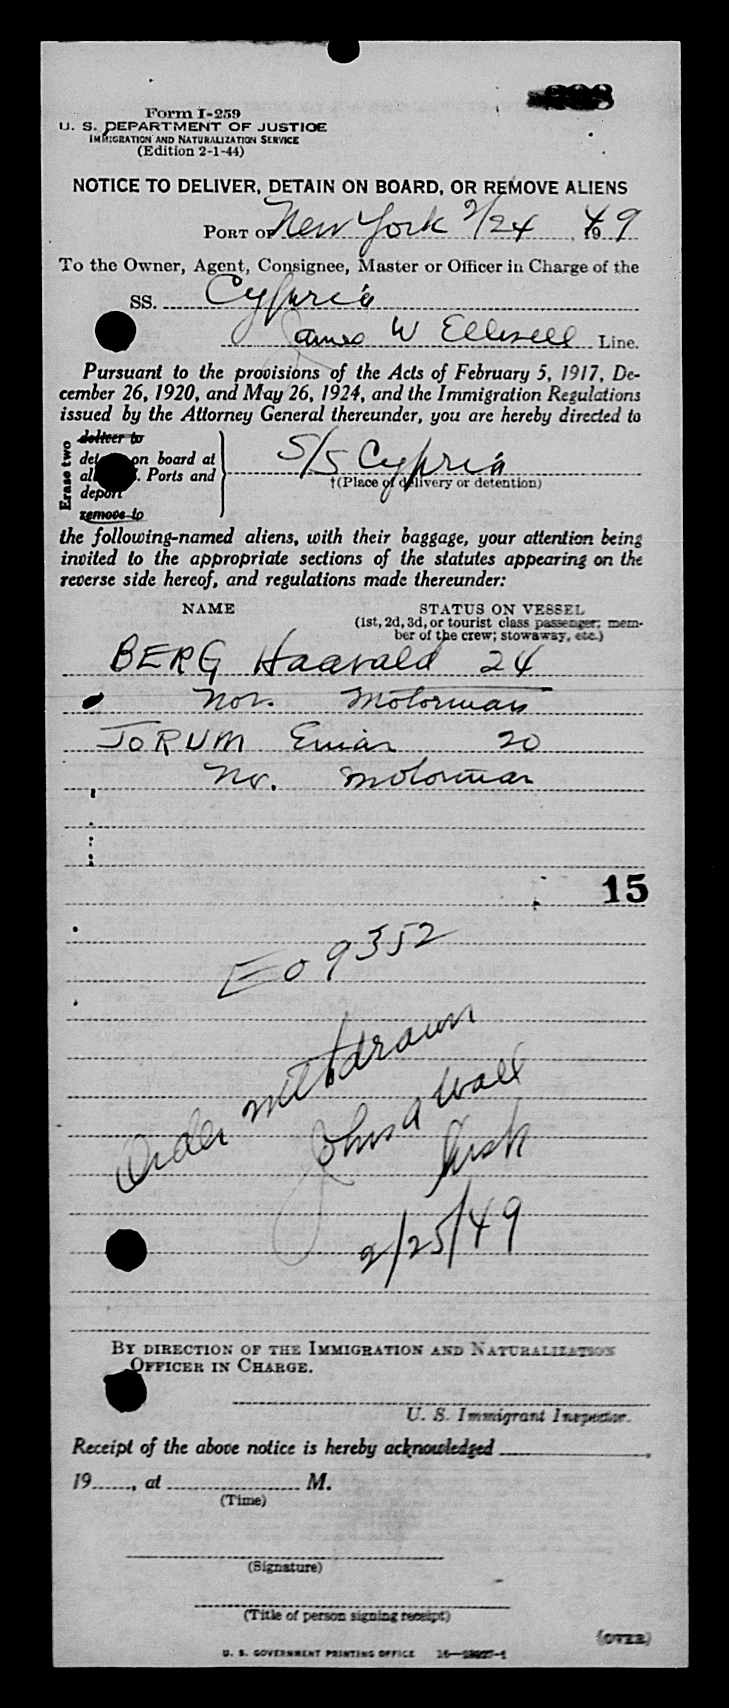 Form I-259
U. S. DEPARTMENT OF JUSTICE
IMMIGRATION AND NATURALIZATION SERVICE
(Edition 2-1-44)
NOTICE TO DELIVER, DETAIN ON BOARD, OR REMOVE ALIENS
PORT OF New York 2/24, 1949
To the Owner, Agent, Consignee, Master or Officer in Charge of the
SS. Cypria
James W Line.
Pursuant to the provisions of the Acts of February 5, 1917, De-
cember 26, 1920, and May 26, 1924, and the Immigration Regulations
issued by the Attorney General thereunder, you are hereby directed to
Erase two
deliver to
on board at
Ports and
deport
remove to
S/S Cypria
†(Place of delivery or detention)
the following-named aliens, with their baggage, your attention being
invited to the appropriate sections of the statutes appearing on the
reverse side hereof, and regulations made thereunder:
NAME STATUS ON VESSEL
(1st, 2d, 3d, or tourist class passenger; mem-
ber of the crew; stowaway, etc.)
BERG Haavald 24
Nor. Motorman
JORUM Einar 20
No. Motorman
15
EO 9352
Order withdrawn
John a Wall
2/25/49
BY DIRECTION OF THE IMMIGRATION AND NATURALIZATION
OFFICER IN CHARGE.
U. S. Immigrant Inspector.
Receipt of the above notice is hereby acknowledged
19, at M.
(Time)
(Signature)
(Title of person signing receipt)
(OVER)
U. S. GOVERNMENT PRINTING OFFICE